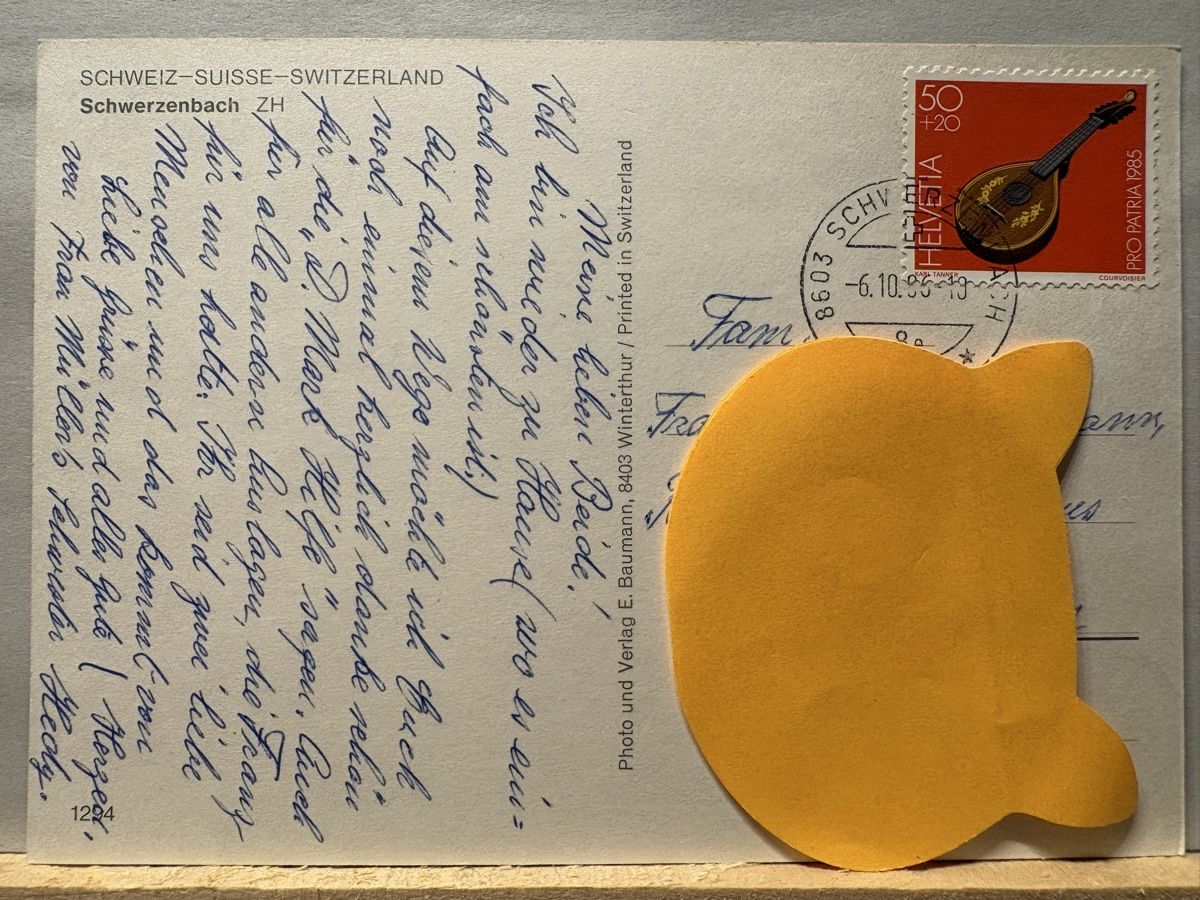 SCHWEIZ–SUISSE–SWITZERLAND
Schwerzenbach ZH
Meine lieben Beide!
Ich bin wieder zu Hause (wo es ein=
fach am schönsten ist.)
Auf diesem Wege möchte ich Euch
noch einmal herzlich danke schön
für die „D Mark Hilfe" sagen. Auch
für alle andern Auslagen, die Franz
für uns hatte. Ihr seid zwei liebe
Menschen und das kommt von
Liebe Grüsse und alles Gute (Herzen.
von Frau Müllers Schwester Hedy.
1294
Photo und Verlag E. Baumann, 8403 Winterthur / Printed in Switzerland
50
+20
HELVETIA
PRO PATRIA 1985
KARL TANNER
COURVOISIER
8603 SCHW ACH
-6.10.86-19
Fam